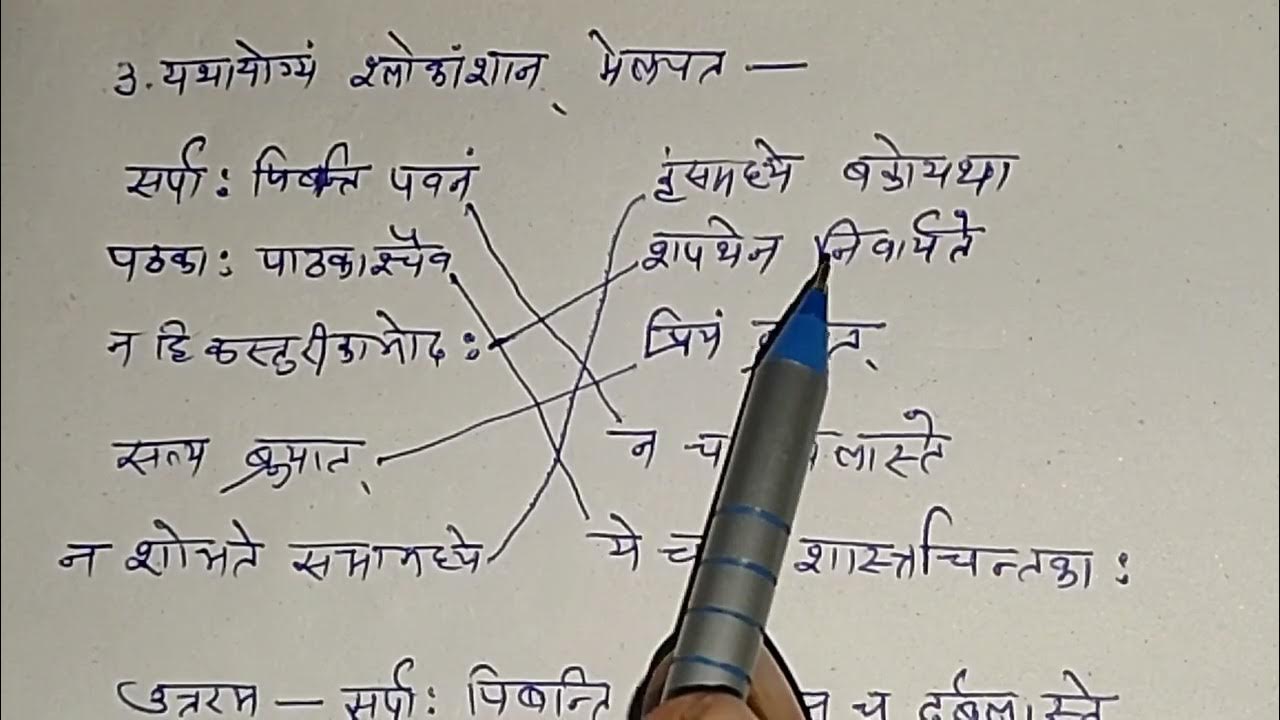 3. यथायोग्यं श्लोकांशान् मेलयत —
सर्पाः पिबन्ति पवनं हंसमध्ये बकोयथा
पठकाः पाठकाश्चैव शपथेन निवार्यते
न हि कस्तुरीकामोदः प्रियं
सत्य ब्रुयात् न च लास्ते
न शोभते सभामध्ये ये च शास्त्रचिन्तकाः
उत्तरम — सर्पाः पिबन्ति न च दुर्बलास्ते